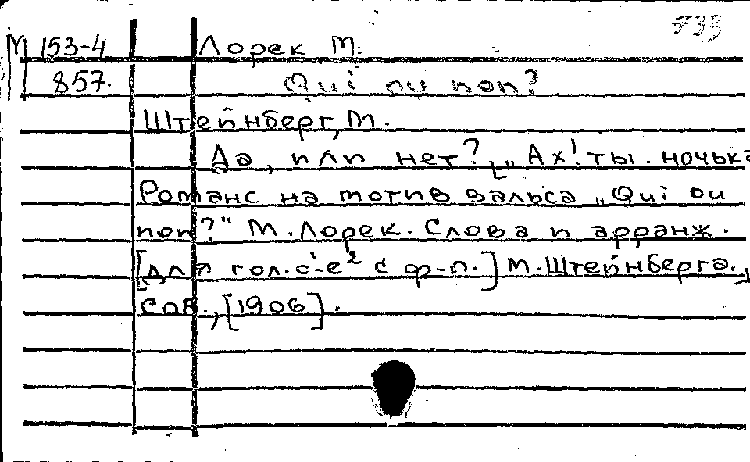 М 153-4 Лорек М. 733
857. Qui ou non?
Штейнберг, М.
Да, или нет? ["Ах! ты ночька
Романс на мотив вальса „Qui ou
non?" М. Лорек. Слова и арранж.
[для гол. c¹-e² с ф-п.] М. Штейнберга.,
Спб., [1906].